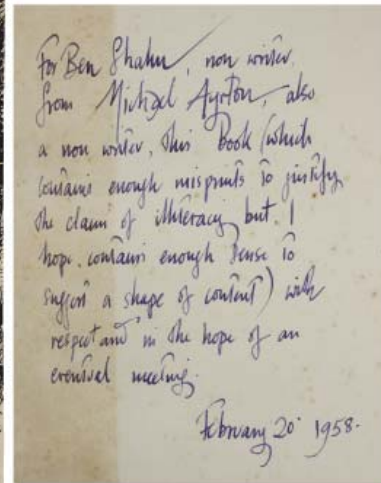 For Ben Shahn, non writer.
from Michael Ayrton, also
a non writer, this Book (which
contains enough misprints to justify
the claim of illiteracy but, I
hope, contains enough sense to
suggest a shape of content) with
respect and in the hope of an
eventual meeting.
February 20 1958.